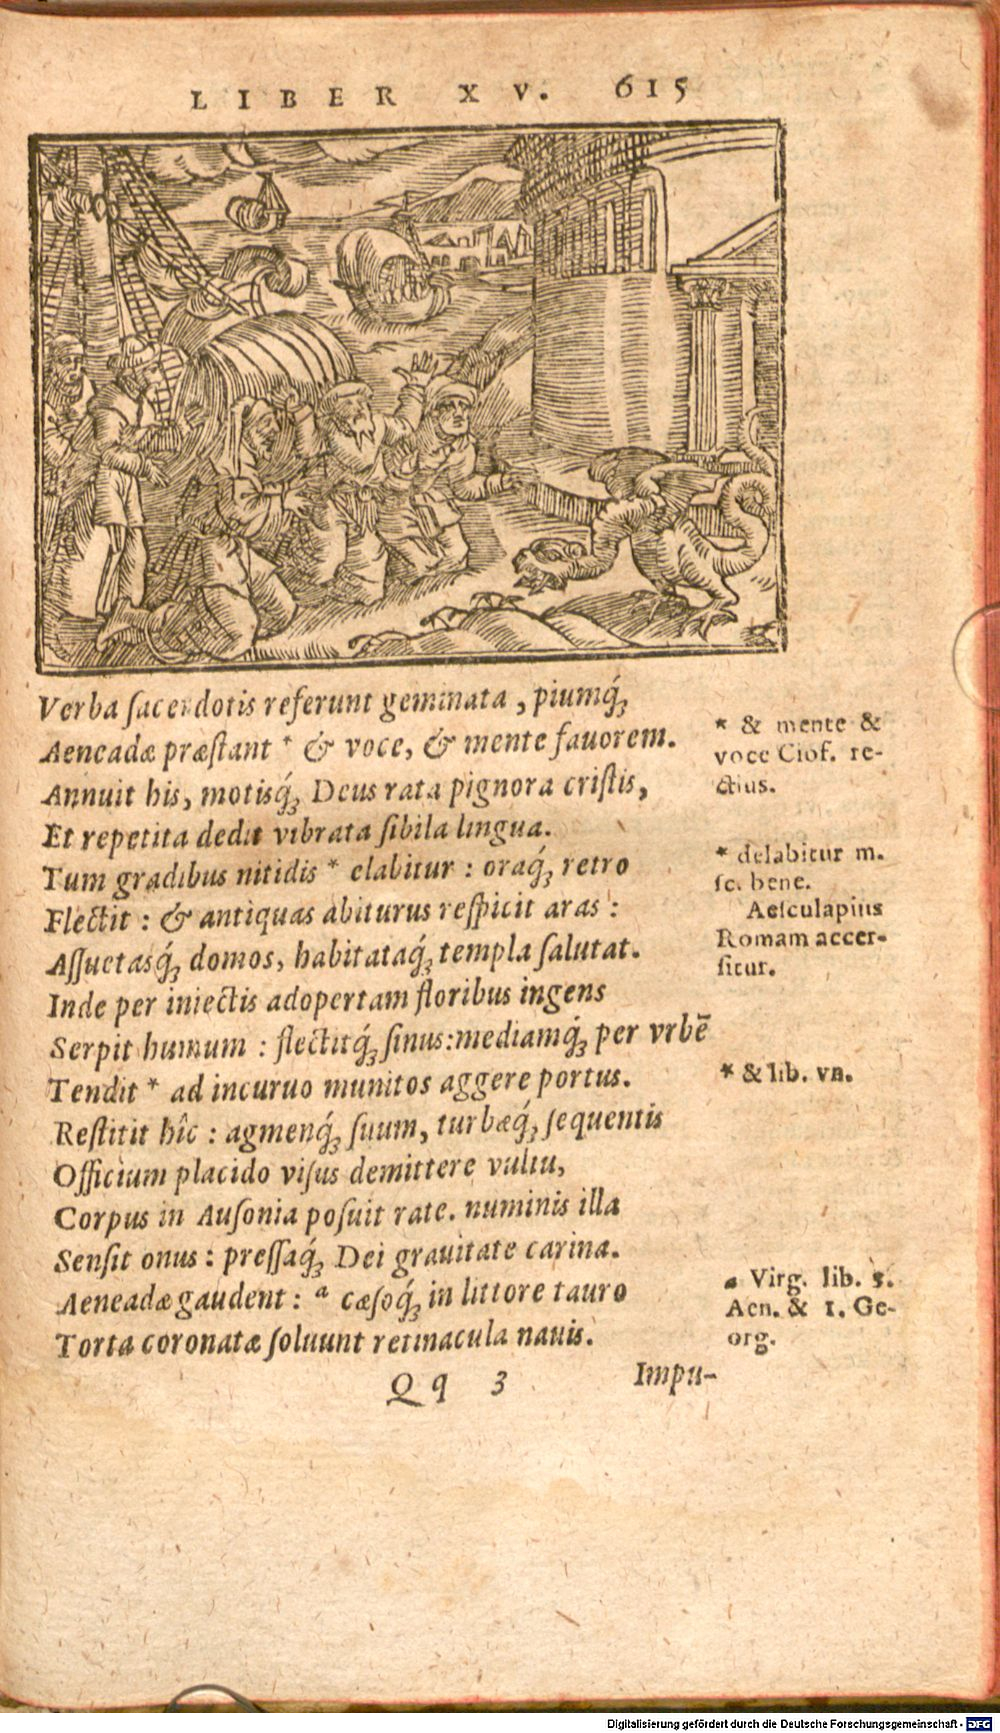 LIBER XV. 615
Verba sacerdotis referunt geminata, piumq́ꝫ
Aeneadæ præstant * & voce, & mente fauorem.
Annuit his, motisq́ꝫ Deus rata pignora cristis,
Et repetita dedit vibrata sibila lingua.
Tum gradibus nitidis * elabitur : oraq́ꝫ retro
Flectit : & antiquas abiturus respicit aras :
Assuetasq́ꝫ domos, habitataq́ꝫ templa salutat.
Inde per iniectis adopertam floribus ingens
Serpit humum : flectitq́ꝫ sinus: mediamq́ꝫ per vrbē
Tendit * ad incuruo munitos aggere portus.
Restitit hîc : agmenq́ꝫ suum, turbæq́ꝫ sequentis
Officium placido visus demittere vultu,
Corpus in Ausonia posuit rate. numinis illa
Sensit onus : pressaq́ꝫ Dei grauitate carina.
Aeneadæ gaudent : ᵃ cæsoq́ꝫ in littore tauro
Torta coronatæ soluunt retinacula nauis.
Qq 3 Impu-
* & mente &
voce Ciof. re-
ctius.
* delabitur m.
sc. bene.
Aesculapius
Romam accer-
situr.
* & lib. vn.
a Virg. lib. 3.
Aen. & 1. Ge-
org.
Digitalisierung gefördert durch die Deutsche Forschungsgemeinschaft - DFG